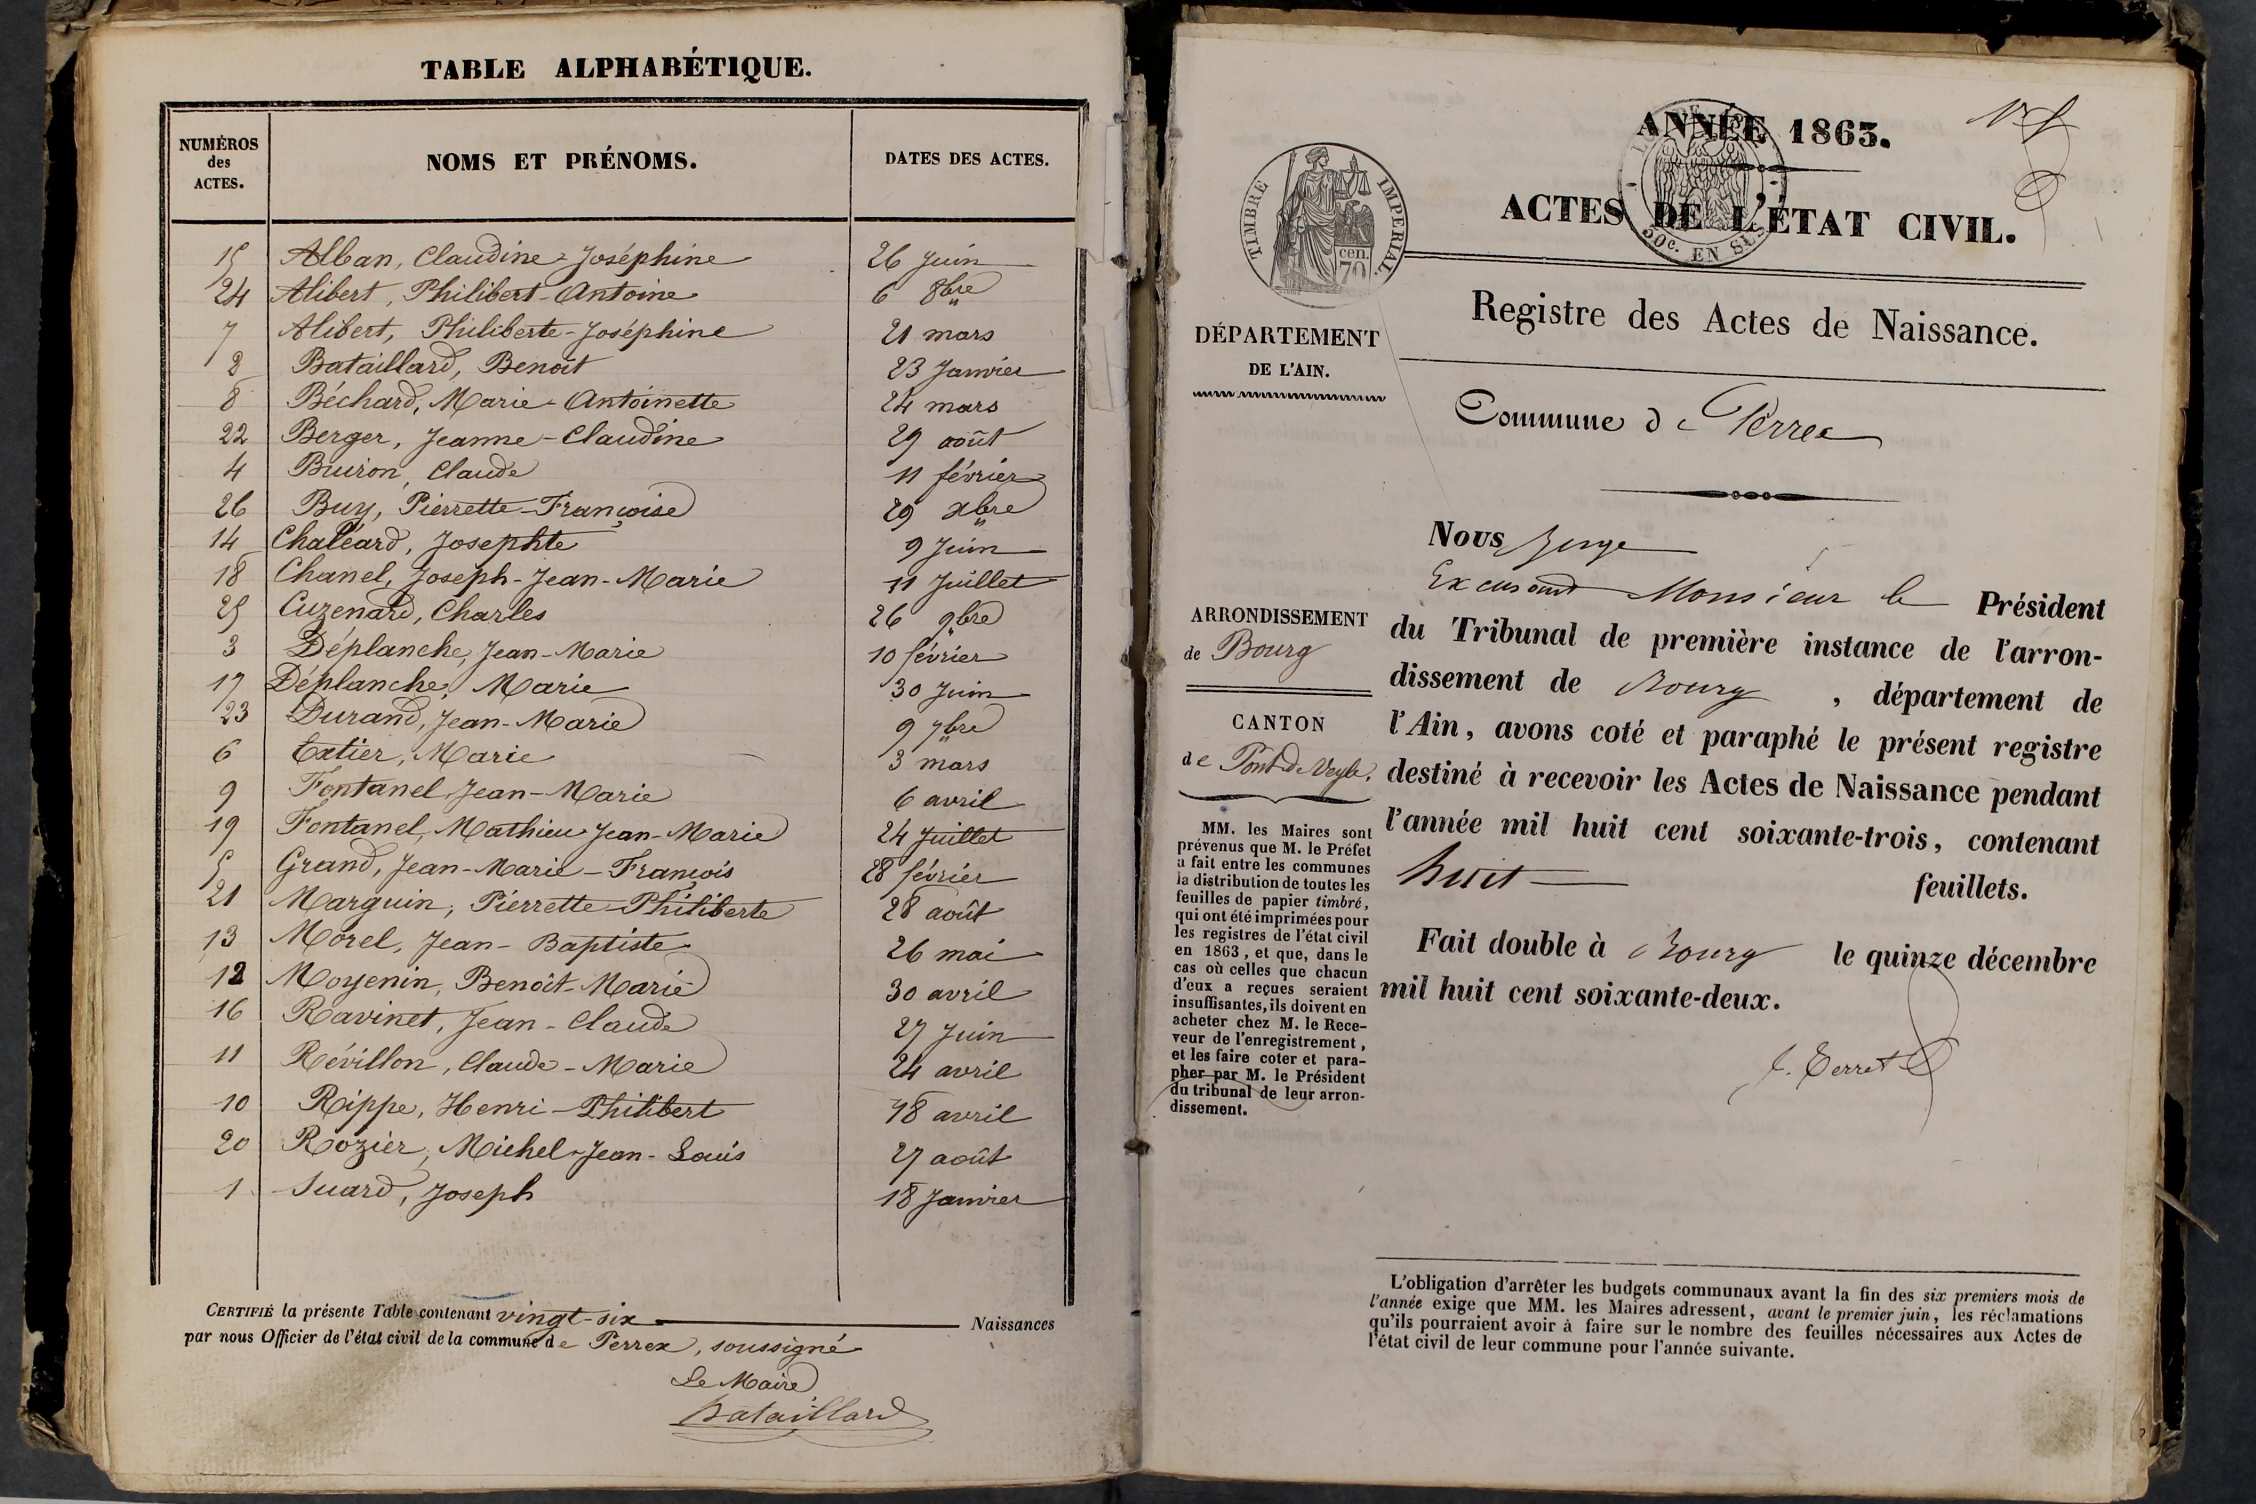 TABLE ALPHABÉTIQUE.
NUMÉROS des ACTES. NOMS ET PRÉNOMS. DATES DES ACTES.
15 Alban, Claudine-Joséphine 26 Juin
24 Alibert, Philibert-Antoine 6 8bre
7 Alibert, Philiberte-Joséphine 21 mars
2 Bataillard, Benoît 23 Janvier
8 Béchard, Marie-Antoinette 24 mars
22 Berger, Jeanne-Claudine 29 août
4 Buiron, Claude 11 février
26 Buy, Pierrette-Françoise 29 xbre
14 Chaléard, Josephte 9 Juin
18 Chanel, Joseph-Jean-Marie 11 Juillet
25 Cuzenard, Charles 26 9bre
3 Déplanche, Jean-Marie 10 février
17 Déplanche, Marie 30 Juin
23 Durand, Jean-Marie 9 7bre
6 Extier, Marie 3 mars
9 Fontanel, Jean-Marie 6 avril
19 Fontanel, Mathieu Jean-Marie 24 Juillet
5 Grand, Jean-Marie-François 28 février
21 Marguin, Pierrette-Philiberte 28 août
13 Morel, Jean-Baptiste 26 mai
12 Moyenin, Benoît-Marie 30 avril
16 Ravinet, Jean-Claude 27 Juin
11 Révillon, Claude-Marie 24 avril
10 Rippe, Henri-Philibert 18 avril
20 Rozier, Michel-Jean-Louis 27 août
1 Suard, Joseph 18 Janvier
CERTIFIÉ la présente Table contenant vingt-six Naissances
par nous Officier de l'état civil de la commune de Perrex, soussigné
Le Maire
Bataillard
ANNÉE 1863.
ACTES DE L'ÉTAT CIVIL.
TIMBRE IMPERIAL.
cen. 70
50c. EN SUS
Registre des Actes de Naissance.
DÉPARTEMENT
DE L'AIN.
Commune de Perrex
ARRONDISSEMENT
de Bourg
CANTON
de Pont de Veyle.
MM. les Maires sont
prévenus que M. le Préfet
a fait entre les communes
la distribution de toutes les
feuilles de papier timbré,
qui ont été imprimées pour
les registres de l'état civil
en 1863, et que, dans le
cas où celles que chacun
d'eux a reçues seraient
insuffisantes, ils doivent en
acheter chez M. le Rece-
veur de l'enregistrement,
et les faire coter et para-
pher par M. le Président
du tribunal de leur arron-
dissement.
Nous Juge
Excusant Monsieur le Président
du Tribunal de première instance de l'arron-
dissement de Bourg, département de
l'Ain, avons coté et paraphé le présent registre
destiné à recevoir les Actes de Naissance pendant
l'année mil huit cent soixante-trois, contenant
huit feuillets.
Fait double à Bourg le quinze décembre
mil huit cent soixante-deux.
Terret
L'obligation d'arrêter les budgets communaux avant la fin des six premiers mois de
l'année exige que MM. les Maires adressent, avant le premier juin, les réclamations
qu'ils pourraient avoir à faire sur le nombre des feuilles nécessaires aux Actes de
l'état civil de leur commune pour l'année suivante.